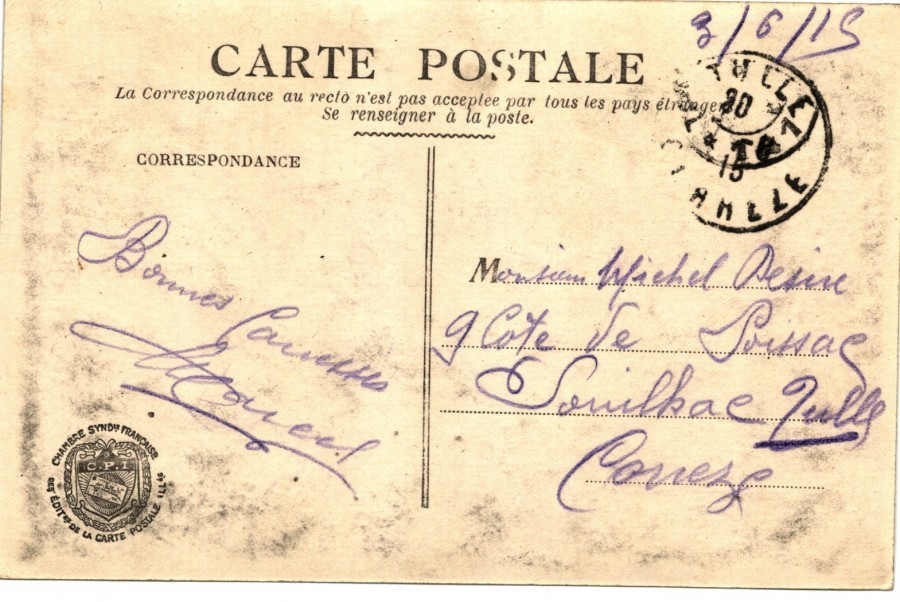 3/6/15
CARTE POSTALE
La Correspondance au recto n'est pas acceptee par tous les pays étrangers
Se renseigner à la poste.
CORRESPONDANCE
20
15
Bonnes
Caresses
Marcel
Monsieur Michel
9 Côte de Poissac
Souilhac Tulle
Correze
CHAMBRE SYNDle FRANÇAISE
DES ÉDITrs DE LA CARTE POSTALE ILLtée
C.P.I